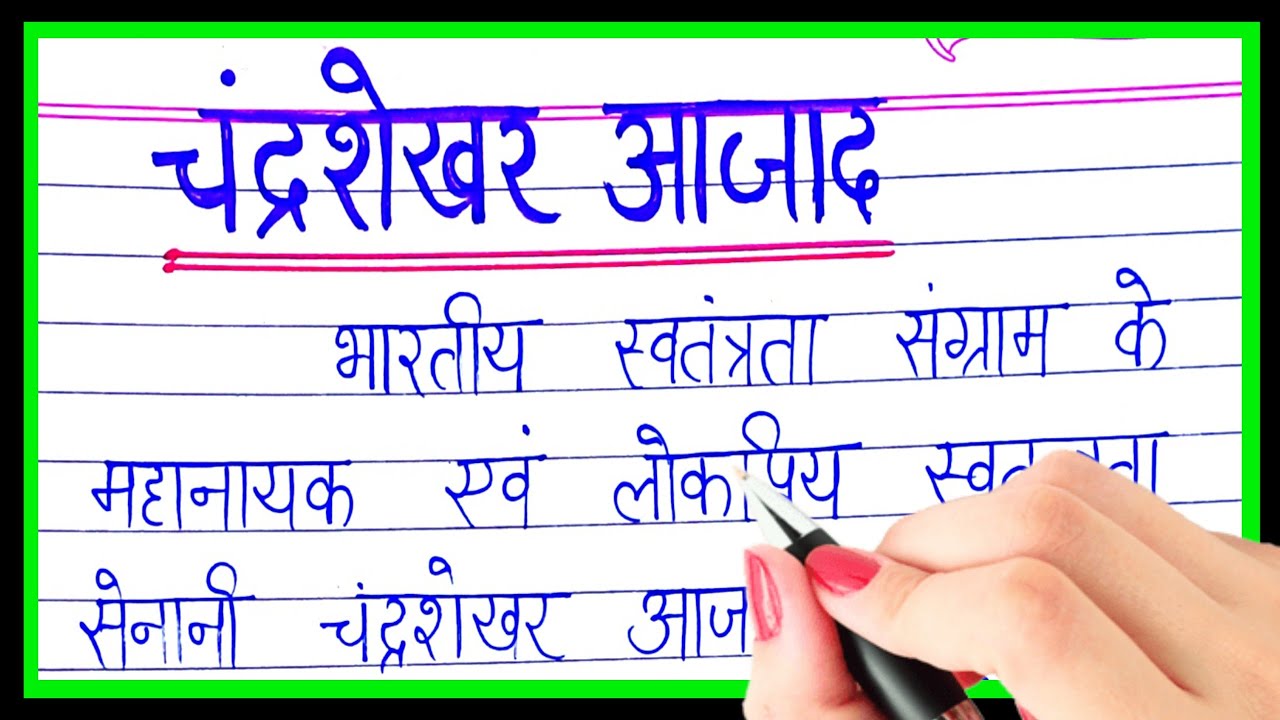 चंद्रशेखर आजाद
भारतीय स्वतंत्रता संग्राम के
महानायक एवं लोकप्रिय
सेनानी चंद्रशेखर